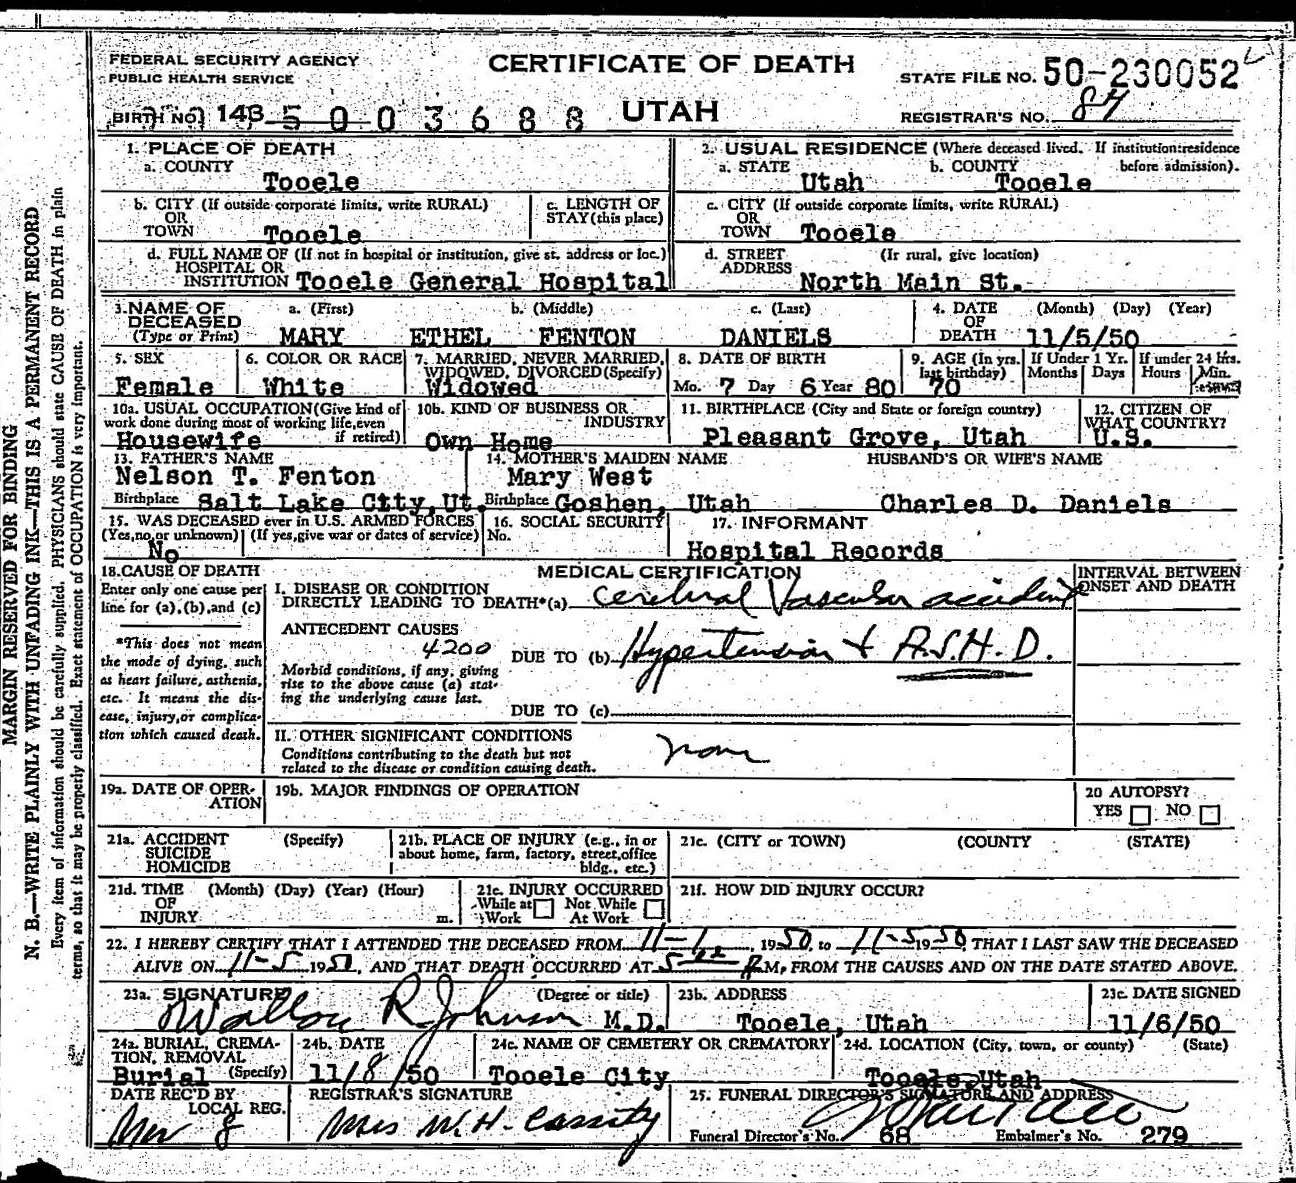 FEDERAL SECURITY AGENCY
PUBLIC HEALTH SERVICE
CERTIFICATE OF DEATH
STATE FILE NO. 50-230052
BIRTH NO. 143 5003688
UTAH
REGISTRAR'S NO. 87
1. PLACE OF DEATH
a. COUNTY
Tooele
2. USUAL RESIDENCE (Where deceased lived. If institution:residence before admission).
a. STATE Utah b. COUNTY Tooele
b. CITY (If outside corporate limits, write RURAL)
OR
TOWN Tooele
c. LENGTH OF
STAY (this place)
c. CITY (If outside corporate limits, write RURAL)
OR
TOWN Tooele
d. FULL NAME OF (If not in hospital or institution, give st. address or loc.)
HOSPITAL OR
INSTITUTION Tooele General Hospital
d. STREET (If rural, give location)
ADDRESS North Main St.
3. NAME OF
DECEASED
(Type or Print)
a. (First) b. (Middle) c. (Last)
MARY ETHEL FENTON DANIELS
4. DATE (Month) (Day) (Year)
OF
DEATH 11/5/50
5. SEX
Female
6. COLOR OR RACE
White
7. MARRIED, NEVER MARRIED,
WIDOWED, DIVORCED (Specify)
Widowed
8. DATE OF BIRTH
Mo. 7 Day 6 Year 80
9. AGE (In yrs.
last birthday)
70
If Under 1 Yr.
Months Days
If under 24 hrs.
Hours Min.
10a. USUAL OCCUPATION (Give kind of
work done during most of working life, even
if retired)
Housewife
10b. KIND OF BUSINESS OR
INDUSTRY
Own Home
11. BIRTHPLACE (City and State or foreign country)
Pleasant Grove, Utah
12. CITIZEN OF
WHAT COUNTRY?
U.S.
13. FATHER'S NAME
Nelson T. Fenton
Birthplace Salt Lake City, Ut.
14. MOTHER'S MAIDEN NAME
Mary West
Birthplace Goshen, Utah
HUSBAND'S OR WIFE'S NAME
Charles D. Daniels
15. WAS DECEASED ever in U.S. ARMED FORCES
(Yes, no, or unknown) (If yes, give war or dates of service)
No
16. SOCIAL SECURITY
No.
17. INFORMANT
Hospital Records
18. CAUSE OF DEATH
Enter only one cause per
line for (a), (b), and (c)
*This does not mean
the mode of dying, such
as heart failure, asthenia,
etc. It means the dis-
ease, injury, or complica-
tion which caused death.
MEDICAL CERTIFICATION
INTERVAL BETWEEN
ONSET AND DEATH
I. DISEASE OR CONDITION
DIRECTLY LEADING TO DEATH*(a) Cerebral Vascular accident
ANTECEDENT CAUSES
4200
DUE TO (b) Hypertension + A.S.H.D.
Morbid conditions, if any, giving
rise to the above cause (a) stat-
ing the underlying cause last.
DUE TO (c)
II. OTHER SIGNIFICANT CONDITIONS
Conditions contributing to the death but not
related to the disease or condition causing death.
none
19a. DATE OF OPER-
ATION
19b. MAJOR FINDINGS OF OPERATION
20 AUTOPSY?
YES NO
21a. ACCIDENT (Specify)
SUICIDE
HOMICIDE
21b. PLACE OF INJURY (e.g., in or
about home, farm, factory, street, office
bldg., etc.)
21c. (CITY or TOWN) (COUNTY (STATE)
21d. TIME (Month) (Day) (Year) (Hour)
OF
INJURY m.
21e. INJURY OCCURRED
While at Not While
Work At Work
21f. HOW DID INJURY OCCUR?
22. I HEREBY CERTIFY THAT I ATTENDED THE DECEASED FROM 11-1, 1950, to 11-5 1950, THAT I LAST SAW THE DECEASED
ALIVE ON 11-5 1950, AND THAT DEATH OCCURRED AT M, FROM THE CAUSES AND ON THE DATE STATED ABOVE.
23a. SIGNATURE (Degree or title)
R Johnson M.D.
23b. ADDRESS
Tooele, Utah
23c. DATE SIGNED
11/6/50
24a. BURIAL, CREMA-
TION, REMOVAL
(Specify)
Burial
24b. DATE
11/8/50
24c. NAME OF CEMETERY OR CREMATORY
Tooele City
24d. LOCATION (City, town, or county) (State)
Tooele, Utah
DATE REC'D BY
LOCAL REG.
Nov 8
REGISTRAR'S SIGNATURE
Mrs W.H. Cassity
25. FUNERAL DIRECTOR'S SIGNATURE AND ADDRESS
Funeral Director's No. 68 Embalmer's No. 279
MARGIN RESERVED FOR BINDING
N. B.—WRITE PLAINLY WITH UNFADING INK—THIS IS A PERMANENT RECORD
Every item of information should be carefully supplied. PHYSICIANS should state CAUSE OF DEATH in plain
terms, so that it may be properly classified. Exact statement of OCCUPATION is very important.